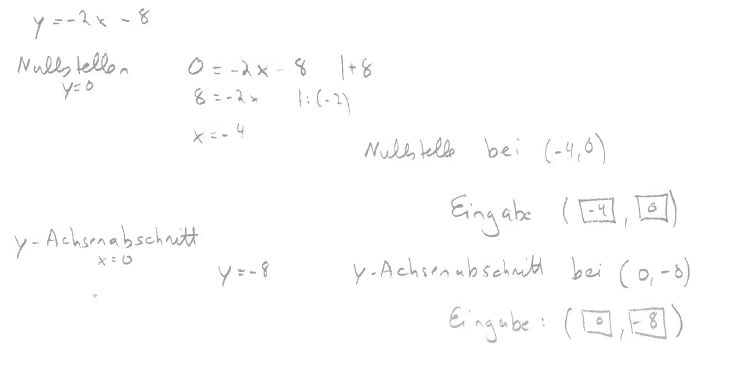 y = -2x - 8
Nullstellen 0 = -2x - 8 |+8
y=0 8 = -2x |:(-2)
x = -4
Nullstelle bei (-4,0)
Eingabe (-4, 0)
y-Achsenabschnitt
x=0 y = -8 y-Achsenabschnitt bei (0,-8)
Eingabe: (0, -8)